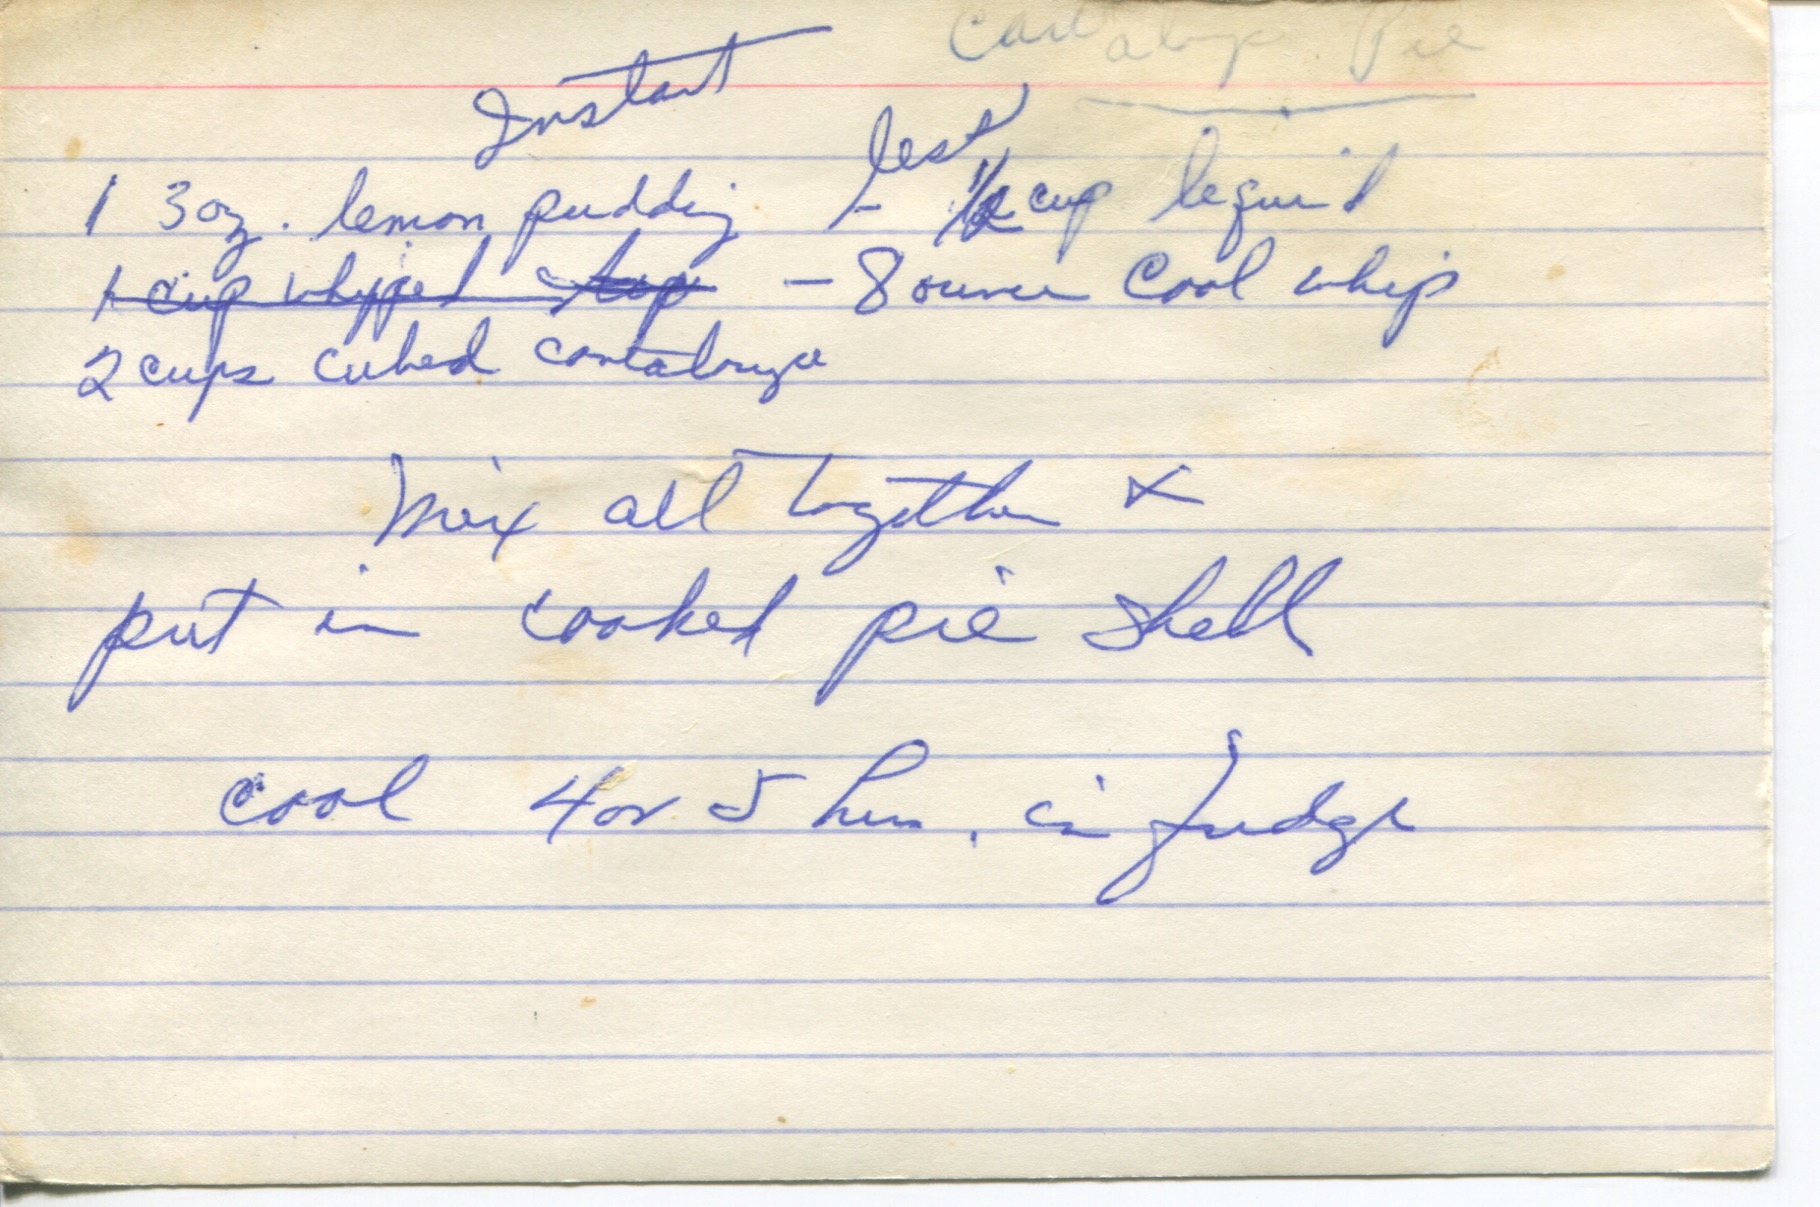 Cantaloupe Pie
Instant
1 3 oz. lemon pudding - less 1/2 cup liquid
1 cup whipped top - 8 ounce Cool whip
2 cups cubed cantaloupe
Mix all together &
put in cooked pie shell
cool 4 or 5 hrs. in fridge